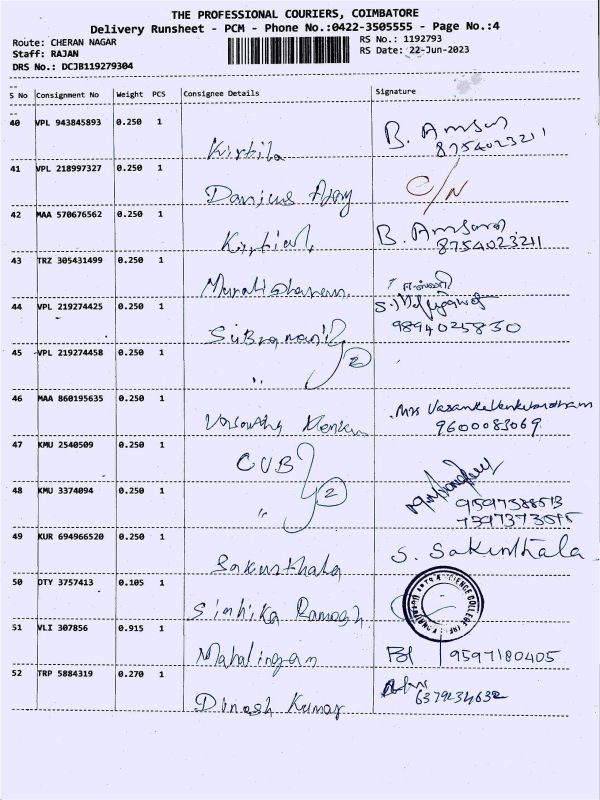 THE PROFESSIONAL COURIERS, COIMBATORE
Delivery Runsheet - PCM - Phone No.:0422-3505555 - Page No.:4
Route: CHERAN NAGAR
RS No.: 1192793
Staff: RAJAN
RS Date: 22-Jun-2023
DRS No.: DCJB119279304
S No Consignment No Weight PCS Consignee Details Signature
40 VPL 943845893 0.250 1 B. Amsa
8754023211
Kirthika
41 VPL 218997327 0.250 1 C/N
Ajay
42 MAA 570676562 0.250 1 B. Amsa
8754023211
43 TRZ 305431499 0.250 1
Muralidharan
44 VPL 219274425 0.250 1
9894025830
Subramani
2
45 VPL 219274458 0.250 1
"
46 MAA 860195635 0.250 1 Mrs
9600083069
47 KMU 2540509 0.250 1
CUB
48 KMU 3374094 0.250 1
2
"
49 KUR 694966520 0.250 1 S. Sakunthala
Sakunthala
50 DTY 3757413 0.105 1
SCIENCE COLLEGE
51 VLI 307856 0.915 1 9597180405
Mahalingam
52 TRP 5884319 0.270 1
Dinesh Kumar